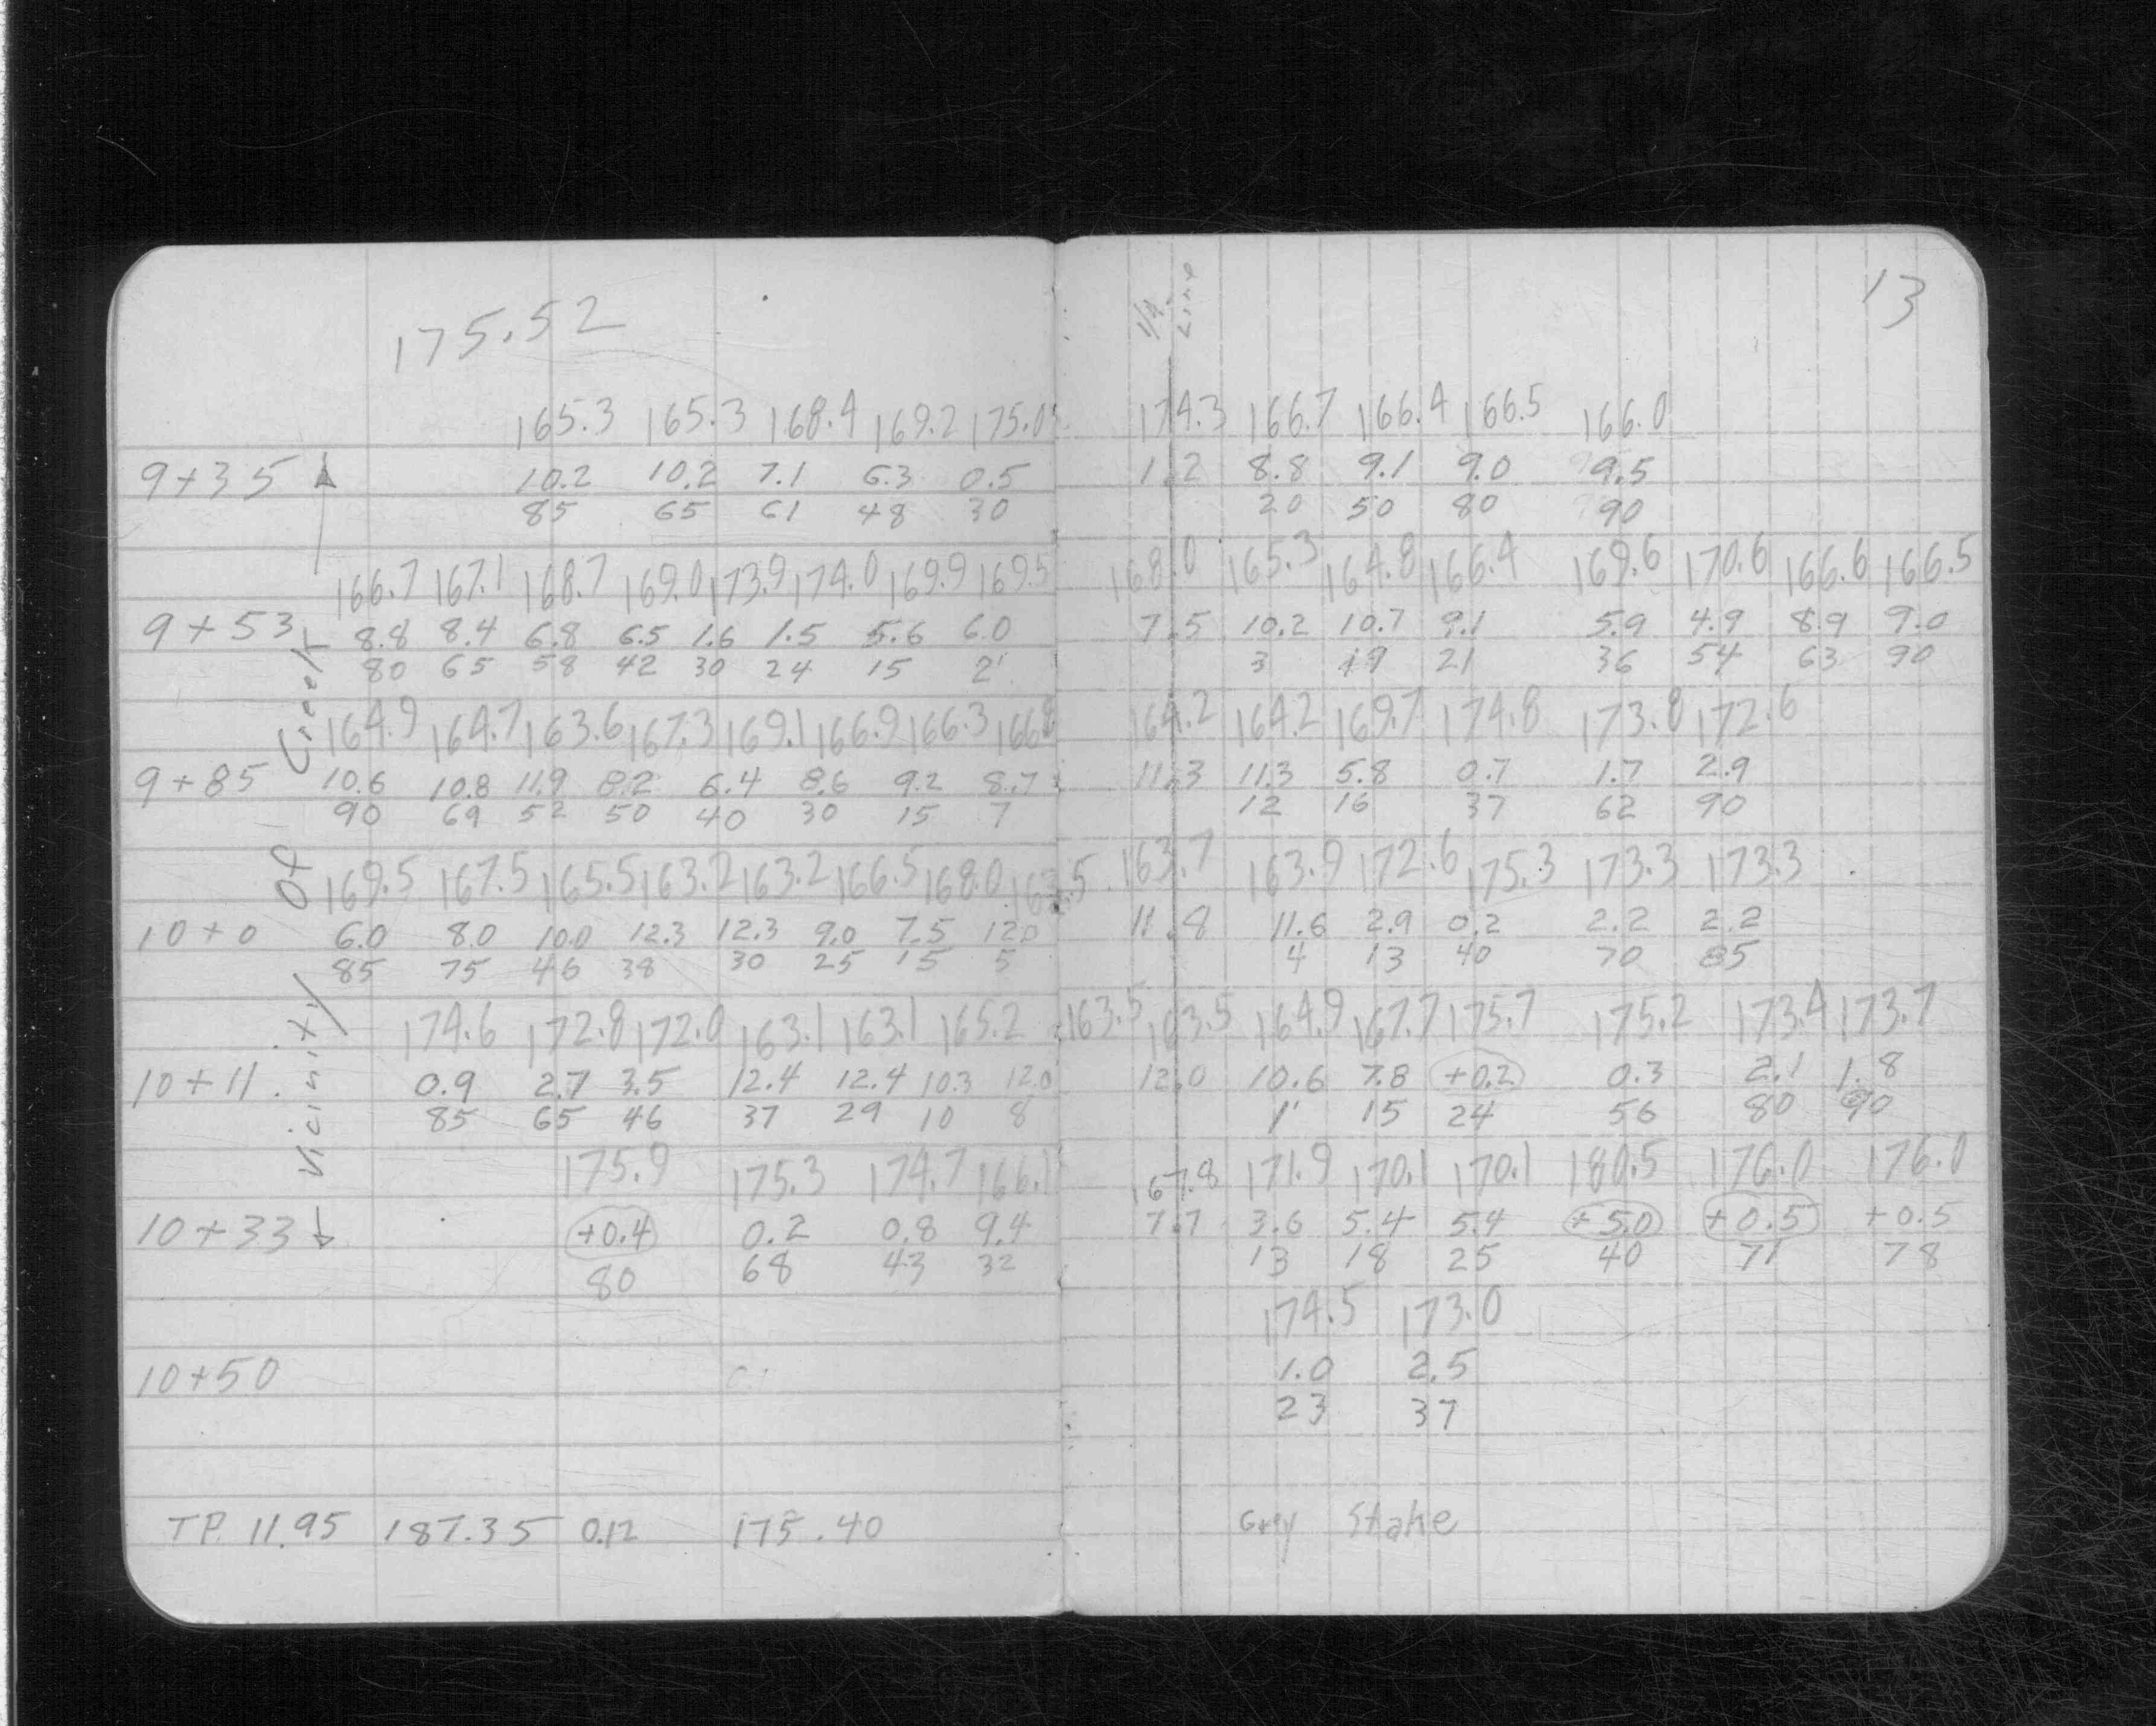 13
175.52
1/4 Line
165.3 165.3 168.4 169.2 175.0 174.3 166.7 166.4 166.5 166.0
9+35 10.2 10.2 7.1 6.3 0.5 1.2 8.8 9.1 9.0 9.5
85 65 61 48 30 20 50 80 90
166.7 167.1 168.7 169.0 173.9 174.0 169.9 169.5 168.0 165.3 164.8 166.4 169.6 170.6 166.6 166.5
9+53 8.8 8.4 6.8 6.5 1.6 1.5 5.6 6.0 7.5 10.2 10.7 9.1 5.9 4.9 8.9 9.0
80 65 58 42 30 24 15 2' 3 19 21 36 54 63 90
164.9 164.7 163.6 167.3 169.1 166.9 166.3 166.8 164.2 164.2 169.7 174.8 173.8 172.6
9+85 10.6 10.8 11.9 8.2 6.4 8.6 9.2 8.7 11.3 11.3 5.8 0.7 1.7 2.9
90 69 52 50 40 30 15 7 12 16 37 62 90
169.5 167.5 165.5 163.2 163.2 166.5 168.0 163.5 163.7 163.9 172.6 175.3 173.3 173.3
10+0 6.0 8.0 10.0 12.3 12.3 9.0 7.5 12.0 11.8 11.6 2.9 0.2 2.2 2.2
85 75 46 38 30 25 15 5 4 13 40 70 85
174.6 172.8 172.0 163.1 163.1 165.2 163.5 163.5 164.9 167.7 175.7 175.2 173.4 173.7
10+11. 0.9 2.7 3.5 12.4 12.4 10.3 12.0 12.0 10.6 7.8 +0.2 0.3 2.1 1.8
85 65 46 37 29 10 8 1' 15 24 56 80 90
175.9 175.3 174.7 166.1 167.8 171.9 170.1 170.1 180.5 176.0 176.0
10+33 +0.4 0.2 0.8 9.4 7.7 3.6 5.4 5.4 +5.0 +0.5 +0.5
80 68 43 32 13 18 25 40 71 78
Vicinity Of Creek
174.5 173.0
10+50 1.0 2.5
23 37
TP. 11.95 187.35 0.12 175.40 Grey Stake